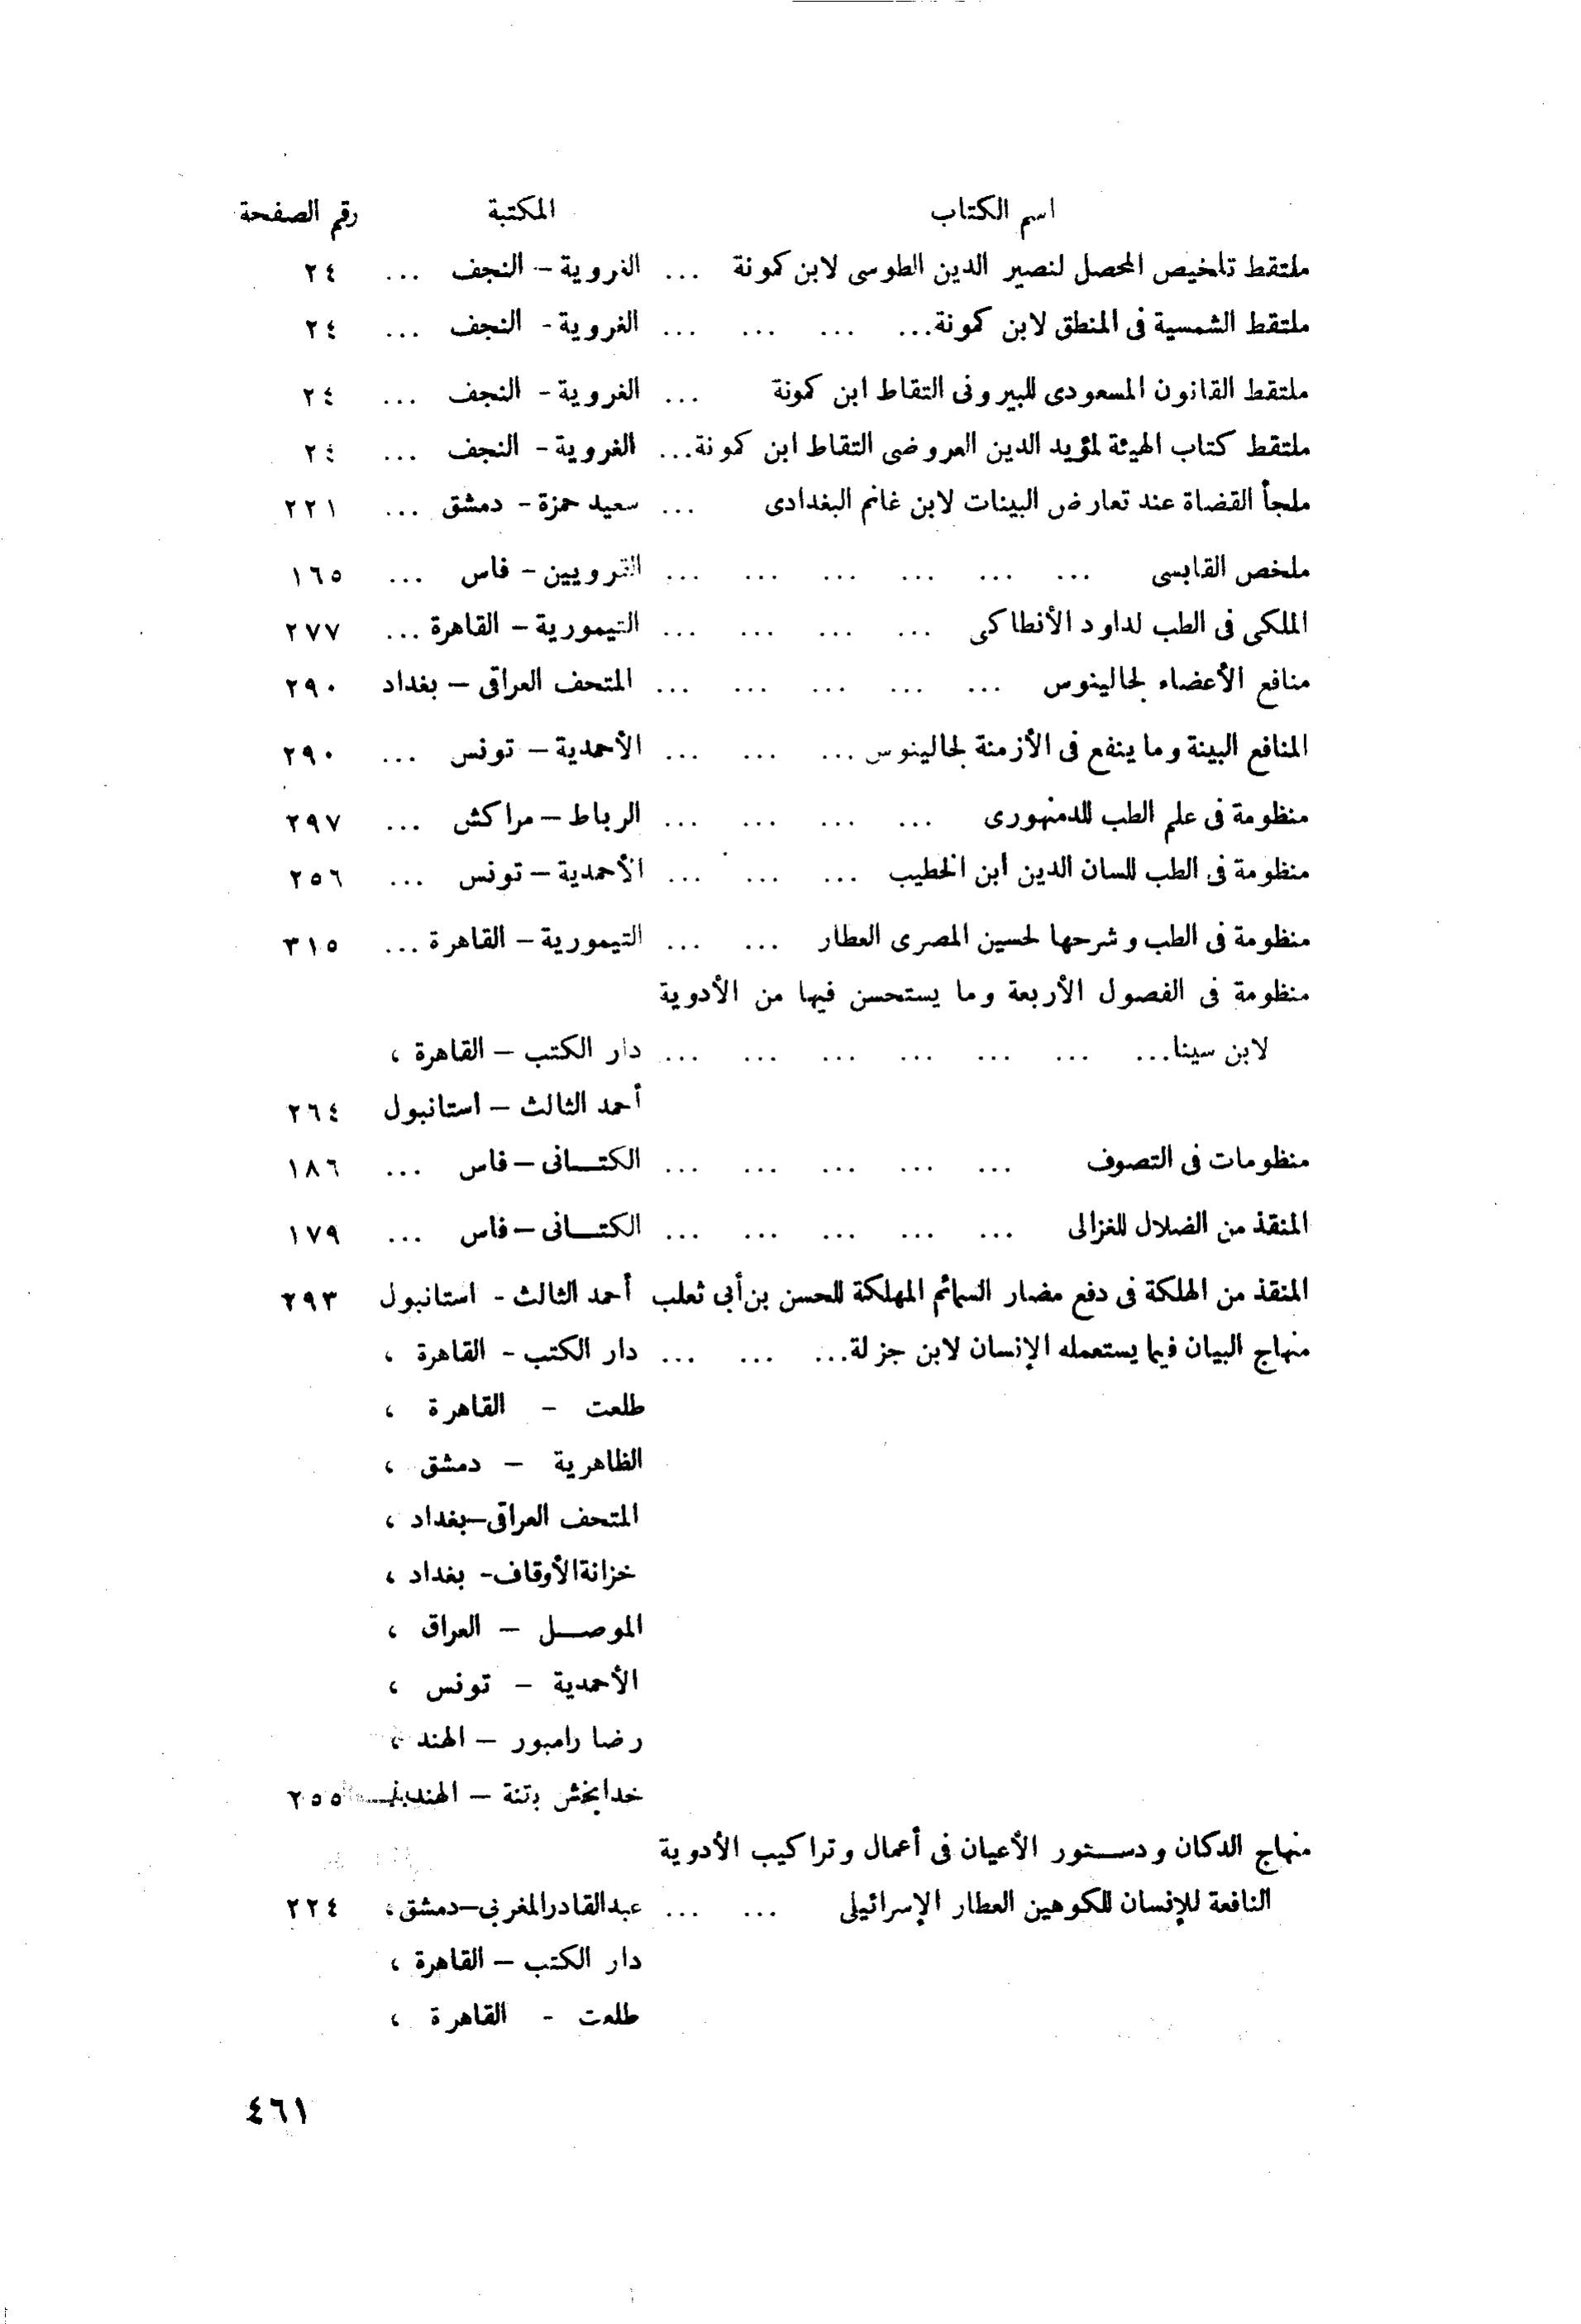 اسم الكتاب المكتبة رقم الصفحة
ملتقط تلخيص المحصل لنصير الدين الطوسى لابن كمونة ... الغروية – النجف ... ٢٤
ملتقط الشمسية فى المنطق لابن كمونة... ... ... ... الغروية - النجف ... ٢٤
ملتقط القانون المسعودى للبيرونى التقاط ابن كمونة ... الغروية - النجف ... ٢٤
ملتقط كتاب الهيئة لمؤيد الدين العروضى التقاط ابن كمونة... الغروية - النجف ... ٢٤
ملجأ القضاة عند تعارض البينات لابن غانم البغدادى ... سعيد حمزة - دمشق ... ٢٢١
ملخص القابسى ... ... ... ... ... ... القرويين – فاس ... ١٦٥
الملكى فى الطب لداود الأنطاكى ... ... ... ... التيمورية – القاهرة ... ٢٧٧
منافع الأعضاء لجالينوس ... ... ... ... ... المتحف العراقى – بغداد ٢٩٠
المنافع البينة وما ينفع فى الأزمنة لجالينوس ... ... ... الأحمدية – تونس ... ٢٩٠
منظومة فى علم الطب للدمنهورى ... ... ... ... الرباط – مراكش ... ٢٩٧
منظومة فى الطب للسان الدين ابن الخطيب ... ... ... الأحمدية – تونس ... ٢٥٦
منظومة فى الطب وشرحها لحسين المصرى العطار ... ... التيمورية – القاهرة ... ٣١٥
منظومة فى الفصول الأربعة وما يستحسن فيها من الأدوية
لابن سينا... ... ... ... ... ... ... دار الكتب – القاهرة ،
أحمد الثالث – استانبول ٢٦٤
منظومات فى التصوف ... ... ... ... ... الكتـــانى – فاس ... ١٨٦
المنقذ من الضلال للغزالى ... ... ... ... ... الكتـــانى – فاس ... ١٧٩
المنقذ من الهلكة فى دفع مضار السمائم المهلكة للحسن بن أبى ثعلب أحمد الثالث - استانبول ٢٩٣
منهاج البيان فيما يستعمله الإنسان لابن جزلة... ... ... دار الكتب - القاهرة ،
طلعت - القاهرة ،
الظاهرية – دمشق ،
المتحف العراقى–بغداد ،
خزانة الأوقاف- بغداد ،
الموصــل – العراق ،
الأحمدية – تونس ،
رضا رامبور – الهند ،
خدابخش بتنة – الهند ٢٥٥
منهاج الدكان ودســتور الأعيان فى أعمال وتراكيب الأدوية
النافعة للإنسان للكوهين العطار الإسرائيلى ... ... عبدالقادرالمغربى–دمشق، ٢٢٤
دار الكتب – القاهرة ،
طلعت - القاهرة ،
٤٦١